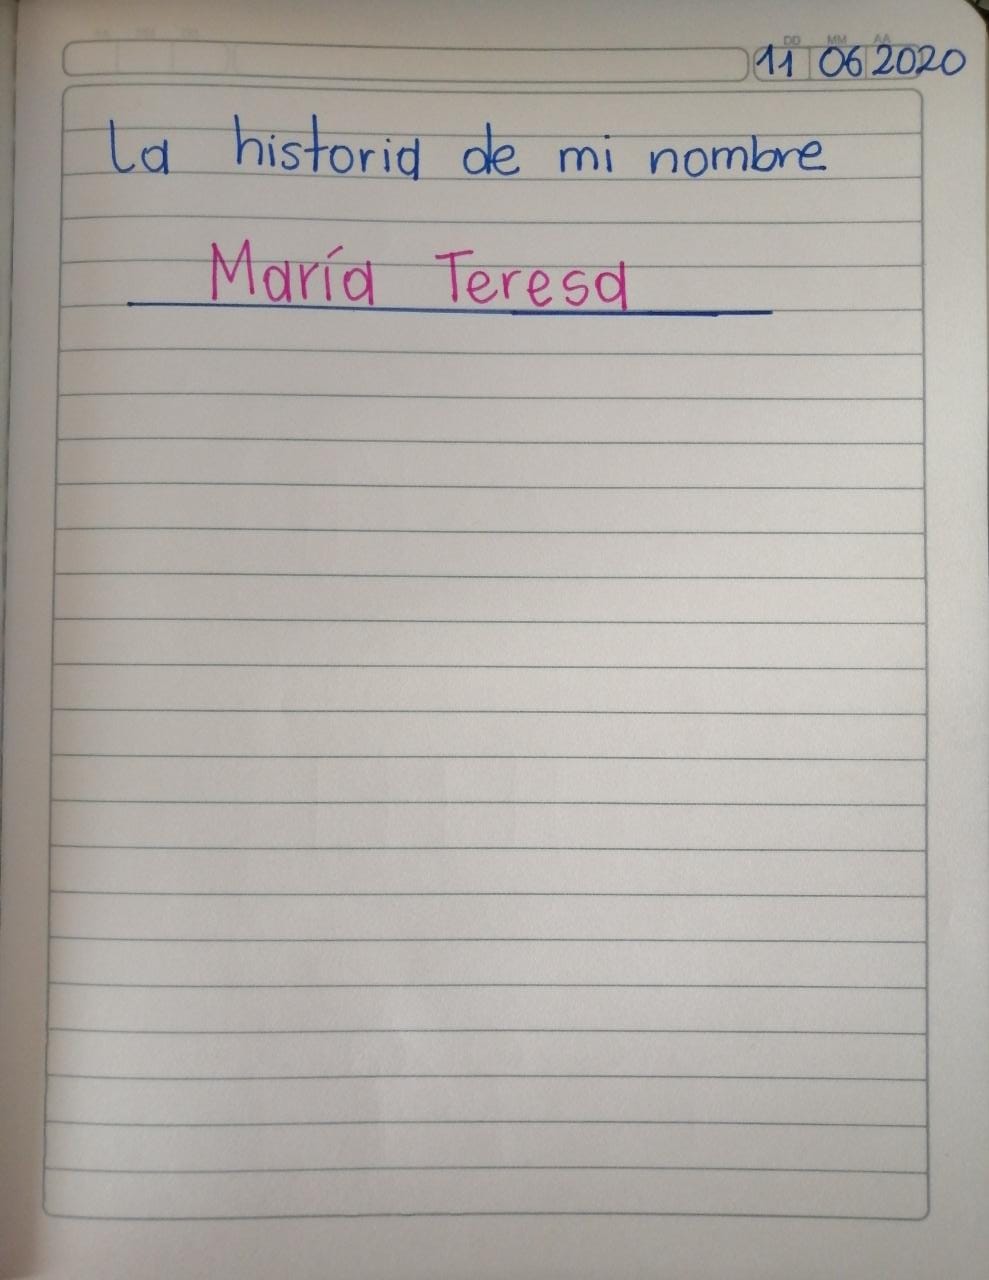 DD MM AA
11 06 2020
La historia de mi nombre
María Teresa